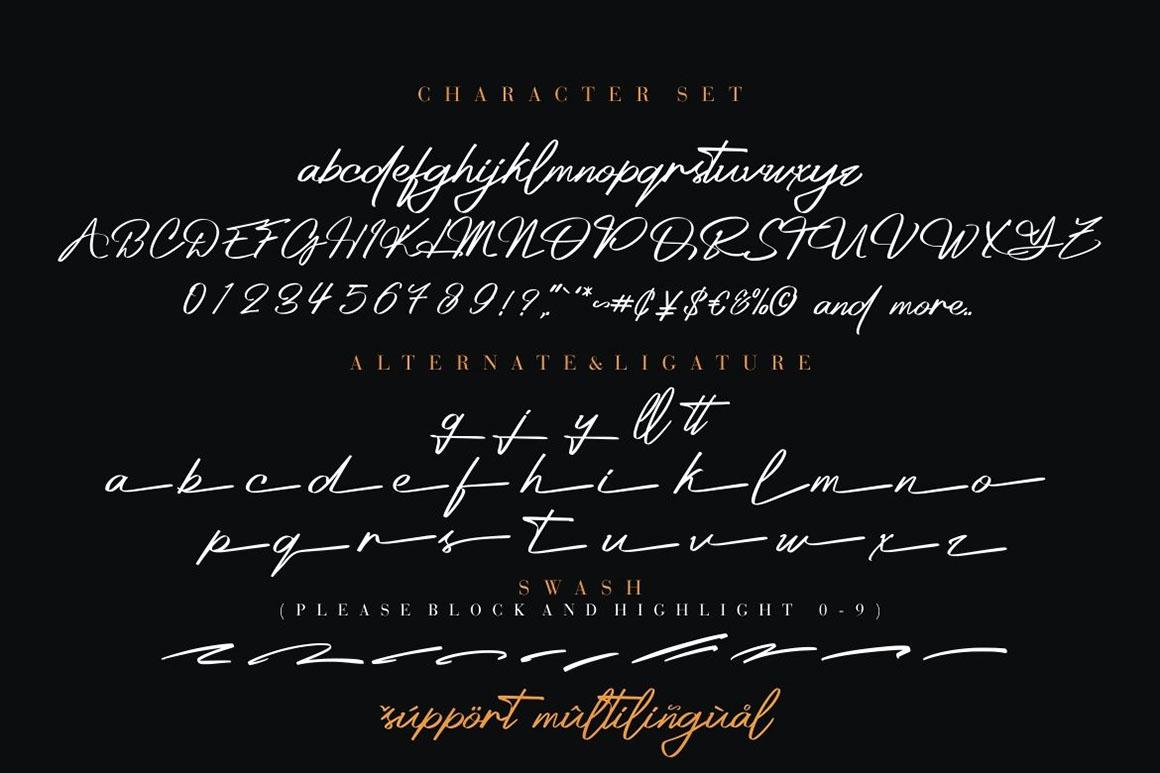 CHARACTER SET
abcdefghijklmnopqrstuvwxyz
ABCDEFGHIJKLMNOPQRSTUVWXYZ
0123456789!?,."`'*~#₵¥$€&%© and more..
ALTERNATE&LIGATURE
g j y ll tt
a b c d e f h i k l m n o
p q r s t u v w x z
SWASH
(PLEASE BLOCK AND HIGHLIGHT 0-9)
šúppört mûltiliñgùål